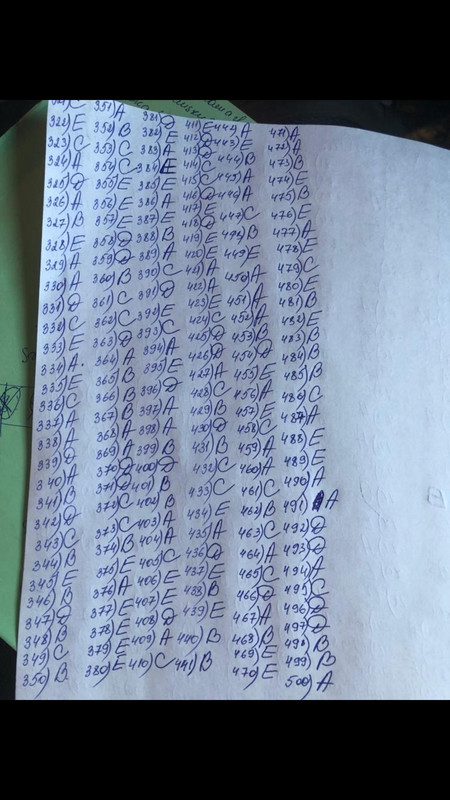 322)E
323)C
324)A
325)D
326)A
327)B
328)E
329)A
330)A
331)D
332)C
333)E
334)A.
335)E
336)C
337)A
338)A
339)D
340)A
341)B
342)D
343)C
344)B
345)E
346)B
347)D
348)B
349)C
350)B
351)A
352)B
353)C
354)C
355)E
356)E
357)E
358)D
359)D
360)B
361)C
362)C
363)D
364)A
365)B
366)B
367)B
368)A
369)A
370)D
371)D
372)C
373)C
374)B
375)E
376)A
377)E
378)E
379)E
380)E
381)D
382)E
383)A
384)E
385)E
386)A
387)E
388)B
389)A
390)C
391)D
392)E
393)C
394)A
395)E
396)D
397)A
398)A
399)B
400)D
401)B
402)B
403)A
404)A
405)C
406)E
407)E
408)D
409)A
410)C
411)E
412)D
413)D
414)C
415)C
416)D
417)E
418)D
419)E
420)E
421)A
422)A
423)E
424)C
425)D
426)D
427)A
428)C
429)B
430)D
431)B
432)C
433)C
434)E
435)A
436)D
437)E
438)B
439)E
440)B
441)B
442)A
443)E
444)B
445)A
446)A
447)C
448)B
449)E
450)A
451)A
452)A
453)B
454)D
455)E
456)A
457)E
458)C
459)A
460)A
461)C
462)B
463)C
464)A
465)C
466)D
467)A
468)B
469)E
470)E
471)A
472)A
473)B
474)E
475)B
476)E
477)A
478)E
479)C
480)E
481)B
482)E
483)B
484)B
485)B
486)C
487)A
488)E
489)E
490)A
491)A
492)D
493)D
494)A
495)C
496)D
497)D
498)B
499)B
500)A